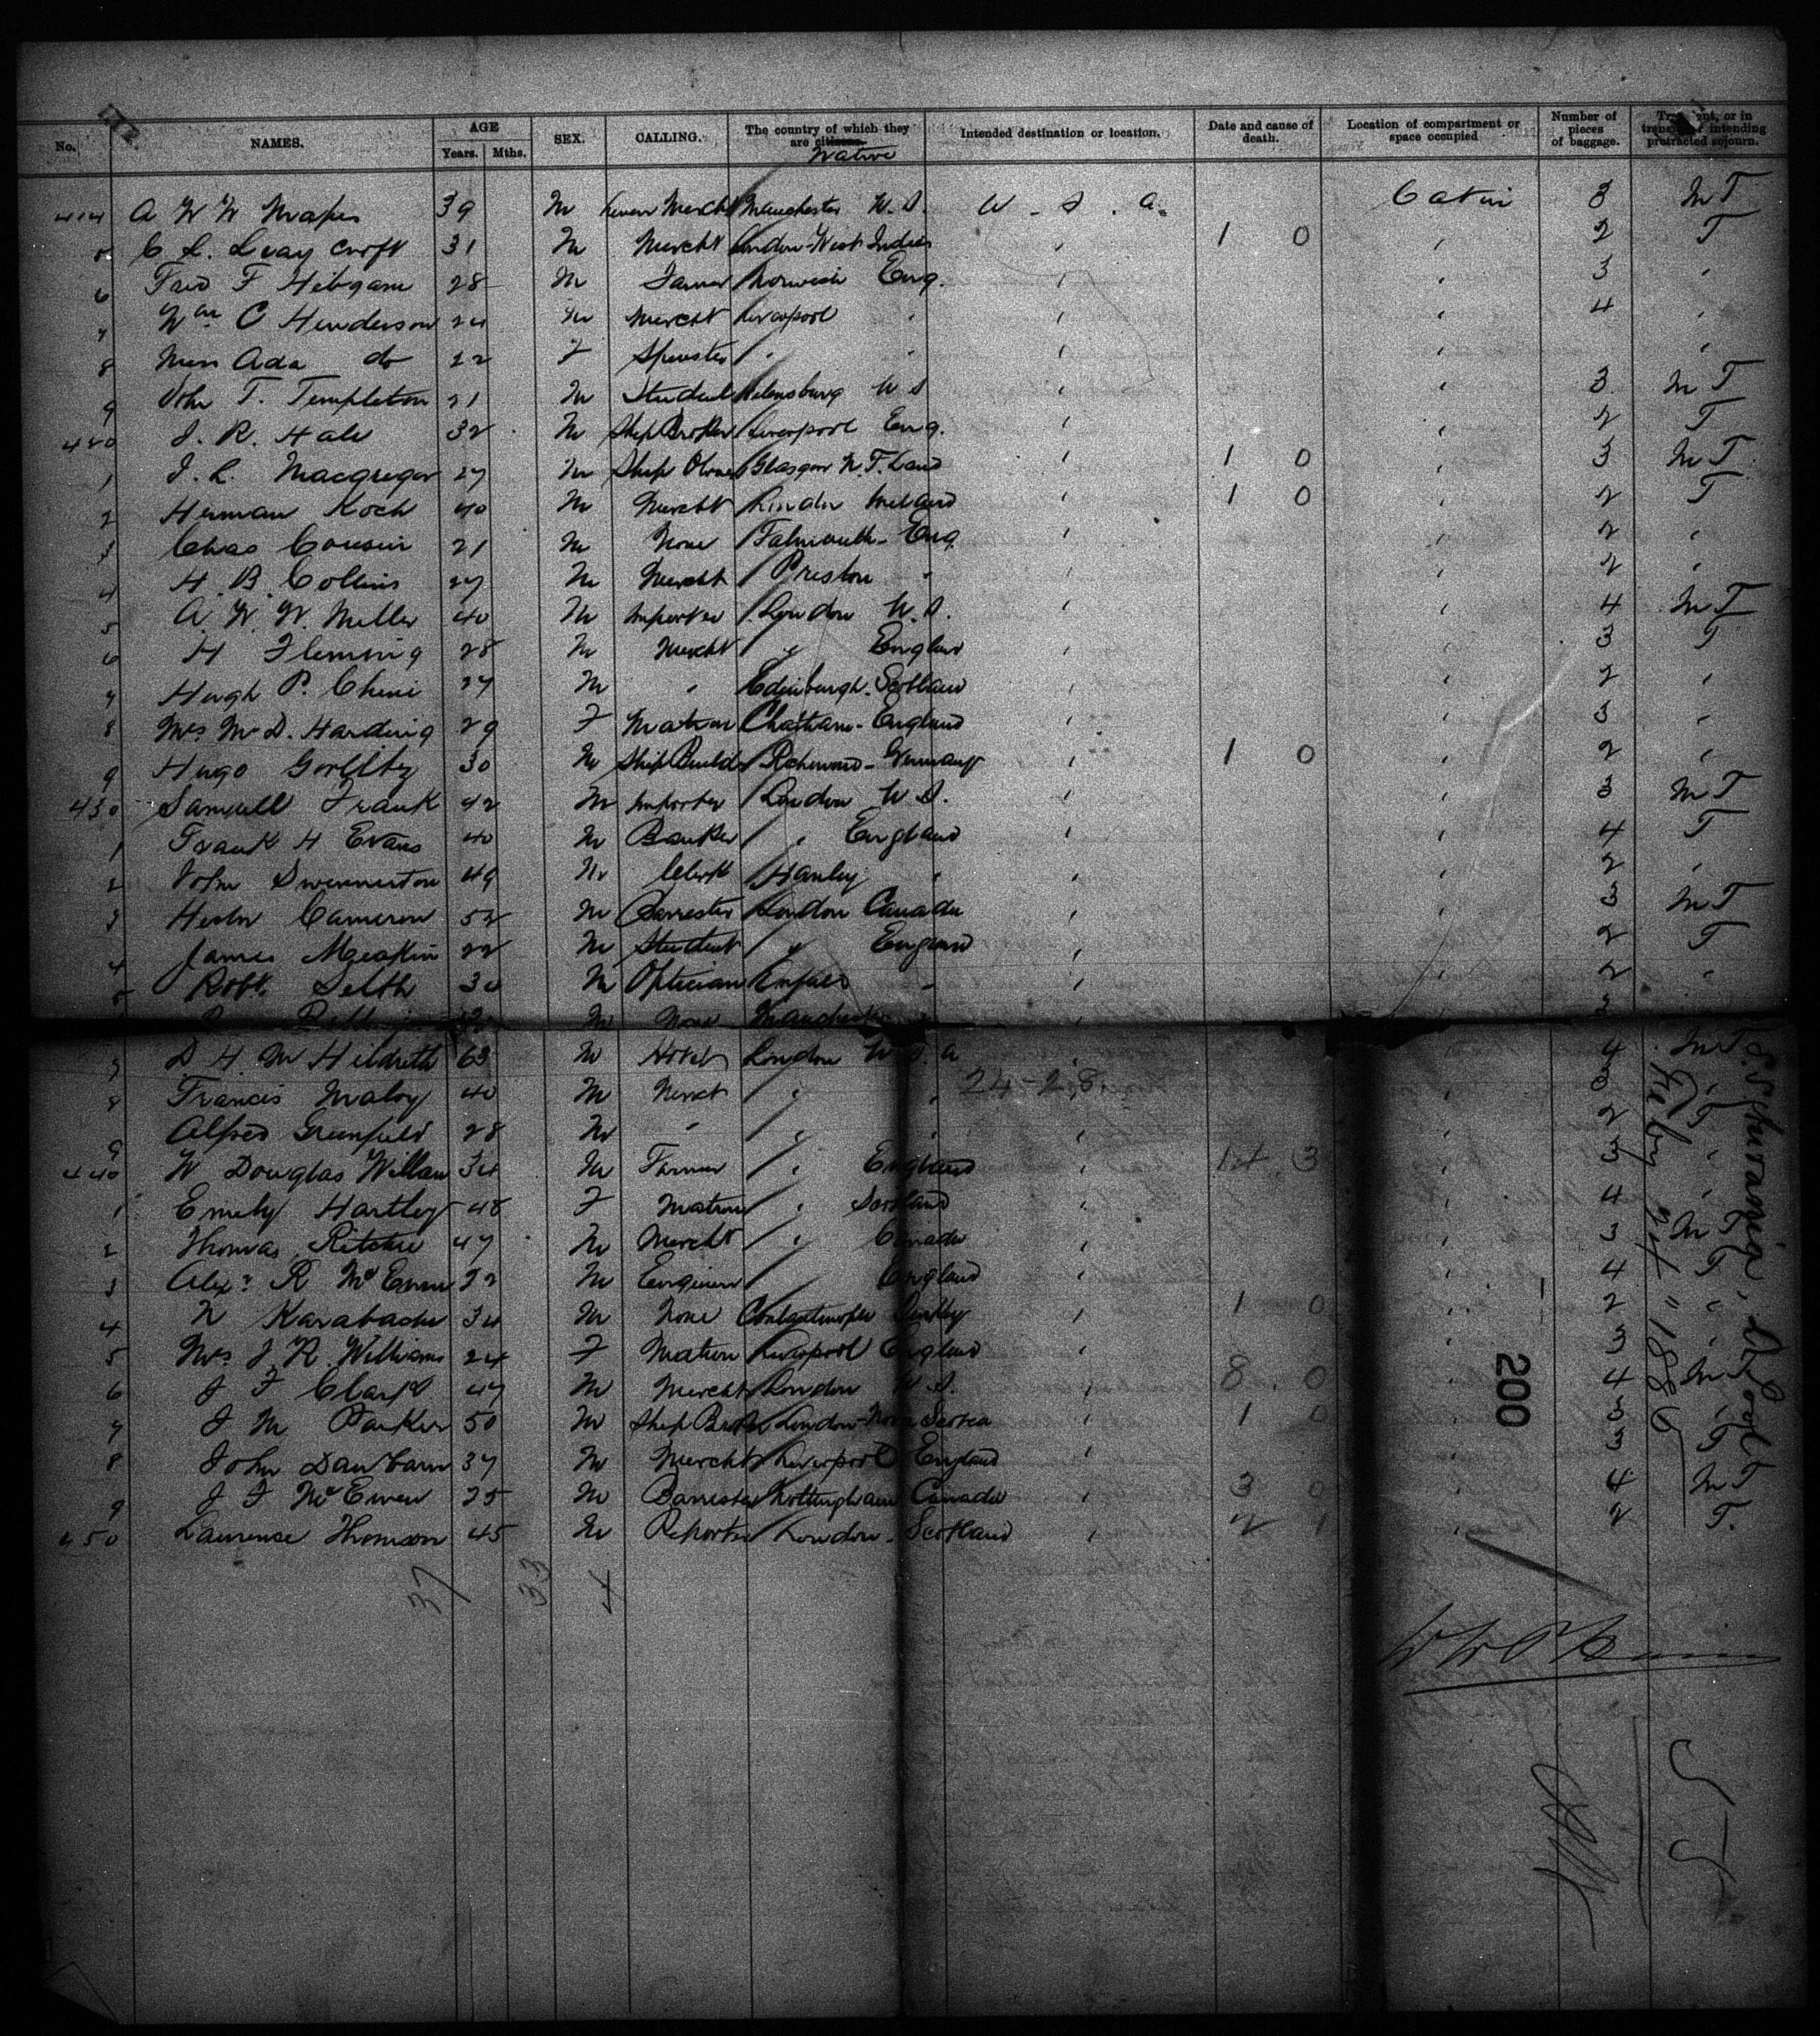 No. NAMES. AGE Years. Mths. SEX. CALLING. The country of which they are citizens. Native Intended destination or location. Date and cause of death. Location of compartment or space occupied Number of pieces of baggage. Transient, or in transit or intending protracted sojourn.
414 A W W Mapes 39 M Mercht Manchester U.S. U. S. A. Cabin 3 M T
5 C L 31 M Mercht London West Indies " 1 0 " 2 T
6 F 28 M Farmer Norwich Eng. " " 3 "
7 Wm C Henderson 24 M Mercht Liverpool " " " 4 "
8 Miss Ada do 22 F Spinster " " " " "
9 John T. Templeton 21 M Student Helensburg U S " " 3 M T
420 J. R. Hale 32 M Ship Broker Liverpool Eng. " " 2 T
1 J. L. Macgregor 27 M Ship Owner Glasgow N.F. Land " 1 0 " 3 M T
2 Herman Koch 40 M Mercht London " 1 0 " 2 T
3 Chas Cousin 21 M None Falmouth - Eng " " 2 "
4 H. B. Collins 27 M Mercht Preston " " " 2 "
5 A. W. W. Miller 40 M Importer London U.S. " " 4 M T
6 H Fleming 28 M Mercht " England " " 3 T
7 Hugh P. 27 M " Edinburgh - Scotland " " 2 "
8 Mrs M D. Harding 29 F Matron Chatham - England " " 3 "
9 Hugo Gorlitz 30 M Ship Builder Richmond - Germany " 1 0 " 2 "
430 Samuell Frank 42 M Importer London U S. " " 3 M T
1 Frank H Evans 40 M Banker " England " " 4 T
2 John Swinnerton 49 M Clerk Hanley " " " 2 "
3 Hector Cameron 52 M Barrester London Canada " " 3 M T
4 James Meakin 22 M Student " England " " 2 T
5 Robt. Selth 30 M Optician Enfield " " " 2 "
M None Manchester " 2
7 D. H. M Hildreth 63 M Hotel London U. S. a " 4 M T
8 Francis Maloy 40 M Mercht " " 24-2,8, " 3 "
9 Alfred Greenfield 28 M " " " " " 2 T
440 W Douglas Willan 34 M Farmer " England " 14 3 " 3 "
1 Emily Hartley 48 F Matron " Scotland " " 4 "
2 Thomas Ritchie 47 M Mercht " Canada " " 3 M T
3 Alexr R McEwen 22 M Engineer England " " 4 T
4 N 34 M None Constantinople Turkey " 1 0 " 2 "
5 Mrs J. R. Williams 24 F Matron Liverpool England " 3 "
6 J F Clark 47 M Mercht London U.S. " 8. 0 " 4 M T
7 J M Parker 50 M Ship Broker London - Nova Scotia 1 0 " 3 "
8 John Dawbarn 37 M Mercht Liverpool England " " 3 T
9 J F McEwen 25 M Barrester Nottingham Canada " 3 0 " 4 M T
450 Laurence Thomson 45 M Reporter London - Scotland " 2 1 " 2 T.
37 33 4
S. S. Servia
L'pool
Feby 24 " 1886
200